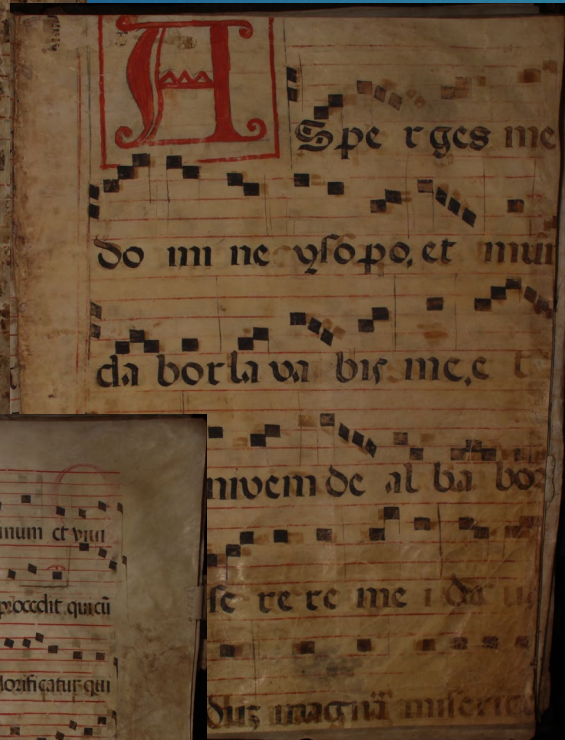 Asperges me
do mi ne ysopo, et mun
da bor la va bis me, e t
nivem de al ba bor
se re re me i de us
dus magnā miserico
inum et vivi
procedit, qui cū
lorificatur qui